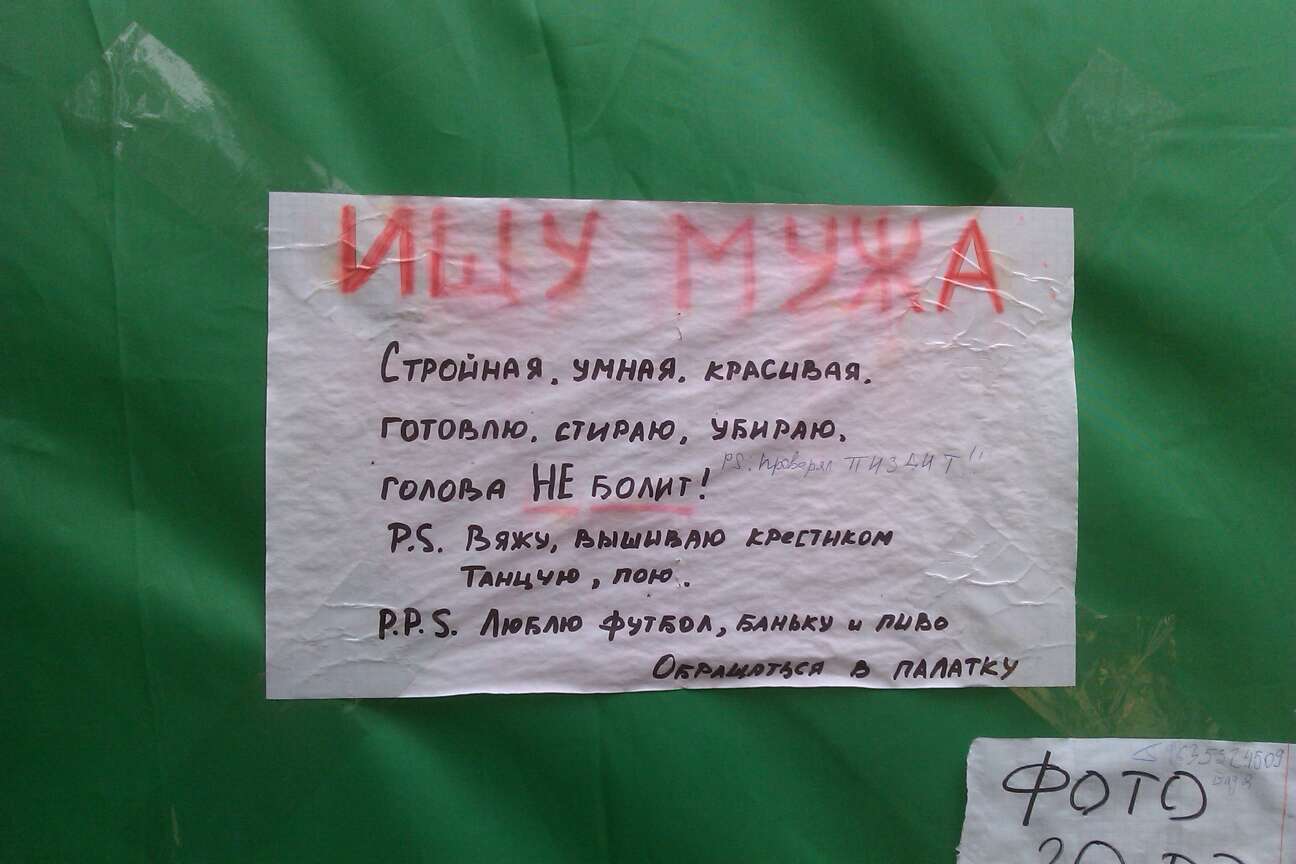 ИЩУ МУЖА
Стройная, умная, красивая.
готовлю, стираю, убираю,
PS: проверял ПИЗДИТ"
голова НЕ БОЛИТ!
P.S. Вяжу, вышиваю крестиком
Танцую, пою.
P.P.S. Люблю футбол, баньку и пиво
Обращаться в палатку
ФОТО